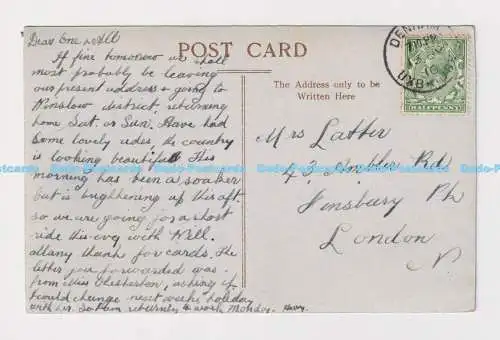 Dear One & All
If fine tomorrow we shall
most probably be leaving
our present address & going to
Winslow district returning
home Sat. or Sun. Have had
some lovely rides, the country
is looking beautiful. This
morning has been a soaker
but is brightening up this aft.
so we are going for a short
ride this evg with Will.
Many thanks for cards. The
letter you forwarded was
from Miss Chesterton, asking if
I could change next weeks holiday
with her. So I am returning to work Monday. Harry.
POST CARD
The Address only to be
Written Here
DENHAM
UXB
HALFPENNY
Mrs Latter
43 Ambler Rd
Finsbury Pk
London
N